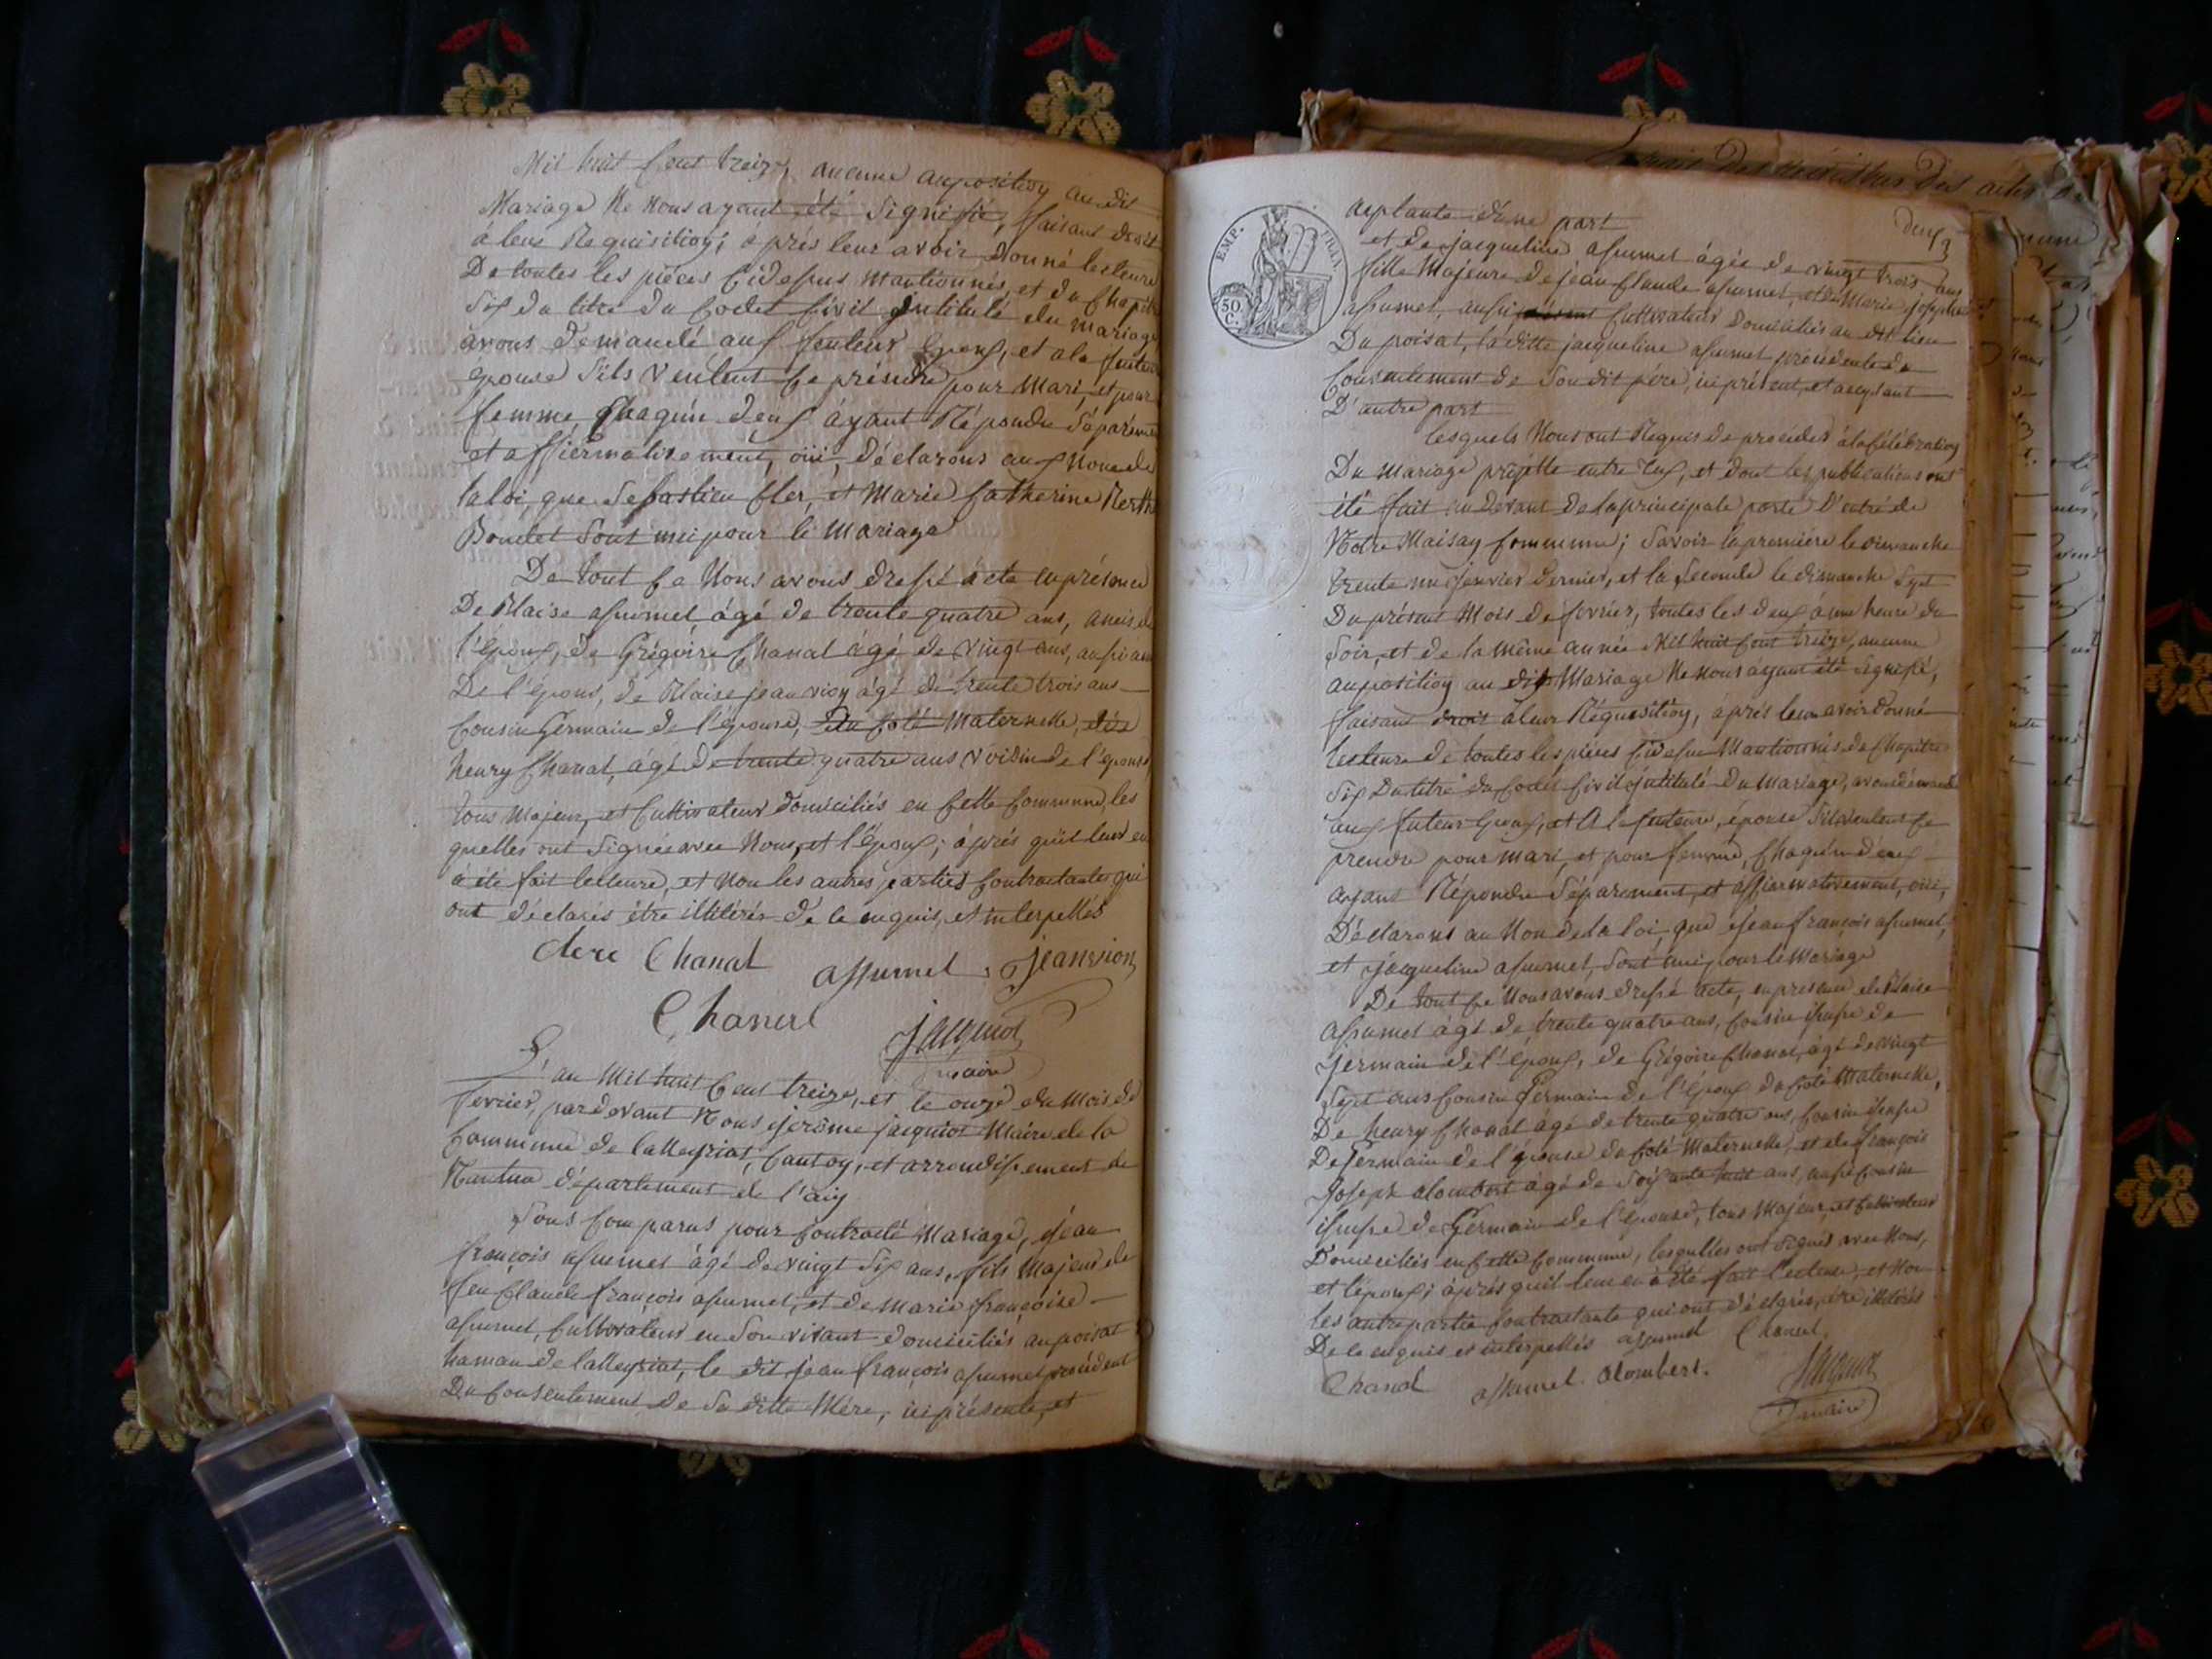 Mil huit Cent treize, aucune auposition au dit
Mariage Ne Nous ayant été Signifié, faisant droit
à leur Requisition; après leur avoir donné lecture
De toutes les pièces Cidessus mantionnés, et du Chapitre
Six du titre du Codes Civil Intitulé du mariage
avons demandé aux futeur Epoux, et a la futeure
épouse S'ils veulent Ce prendre pour Mari, et pour
femme, Chaqu'un deux áyant Répondu Séparément
et affiermativement, oüi, déclarons aux Nom de
la loi, que Sebastien Cler, et Marie Catherine Berth
Boudet Sont uni pour le Mariage
De tout Ce Nous avons dressé acte en présence
De Blaise assumel ágé de trente quatre ans, amis de
l'épouse, de Grégoire Chanal ágé de vingt ans, aussi ami
De l'épous, de Blaise jeanvion ágé de trente trois ans
Cousin Germain de l'épouse, du Coté Maternelle,
henry Chanal, ágé de trente quatre ans voisin de l'épouse
tous Majeur, et Cultivateur domiciliés en Cette Commune, les
quelles ont Signé avec Nous, et l'époux; áprés qu'il leur en
á été fait lecteure, et Non les autres parties Contractante qui
ont déclarés être illitérés de ce enquis, et interpellés
clerc Chanal assumel Jeanvion
Chanal Jacquiot
maire
L'an Mil huit Cent treize, et le onze du Mois de
fevrier, pardevant Nous jerôme jacquiot Maire de la
Commune de lalleyriat, Canton, et arrondissement de
Nantua département de l'ain
Sons Comparus pour Contracté Mariage, jéan
françois assumel ágé de vingt Six ans, fils Majeur de
feu Claude françois assumel, et de Marie françoise
assumel, Cultivateur en Son vivant domiciliés au poisat
hamau de lalleyriat, le dit jéan françois assumel procédent
Du Consentement de Sa ditte Mére, ici présente, et
EMP. FRAN.
50 C.
deux
aceptante d'une part
et de jacqueline assumel ágée de vingt trois ans
fille Majeure de jéan Claude assumel, et de Marie josephe
assumel, aussi Cultivateur Domiciliés au dit lieu
Du poisat, la ditte jacqueline assumel procédente du
Consentement de Son dit pére, ici présent, et aceptant
D'autre part
lesquels Nous ont Requis de procéder á la Célébration
Du Mariage projetté entre Eux, et dont les publications ont
été fait audevant de la principale porte D'entré de
Notre Maison Commune; Savoir la première le dimanche
trente un janvier dernier, et la Seconde le dimanche Sept
Du présent Mois de fevrier, toutes les deux á une heure du
Soir, et de la même année Mil huit Cent treize, aucune
auposition au dit Mariage Ne Nous ayant été signifié,
faisant droit á leur Réquisition, áprés leur avoir donné
lecteure de toutes les pièces Cidessus Mantionnés du Chapitre
Six Du titre du Codes Civil Intitulé Du Mariage, avons demandé
aux futeur Epoux, et A la futeure épouse S'ils veulent Ce
prendre pour mari, et pour femme, Chaqu'un deux
ayant Répondu Séparement, et affiermativement, oüi,
Déclarons au Nom de la loi, que jean françois assumel,
et jacqueline assumel, Sont uni pour le Mariage
De tout Ce Nous avons dressé acte, en présence de Blaise
assumel ágé de trente quatre ans, Cousin issuse de
jermain de l'époux, de Grégoire Chanal, ágé de vingt
Sept ans Cousin Germain de l'époux du Coté Maternelle,
De henry Chanal ágé de trente quatre ans, Cousin issuse
De jermain de l'épouse du Coté Maternelle, et de françois
Joseph alombert ágé de Soixante huit ans, aussi Cousin
issuse de Germain de l'épouse, tous Majeur, et Cultivateur
Domiciliés en Cette Commune, lesquelles ont Signés avec Nous,
et l'époux; áprés qu'il leur en á été fait lecteure, et Non
les autre partie Contractante qui ont déclarés être illitérés
De ce enquis et interpellés assumel Chanal
Chanal assumel alombert.
Jacquiot
maire